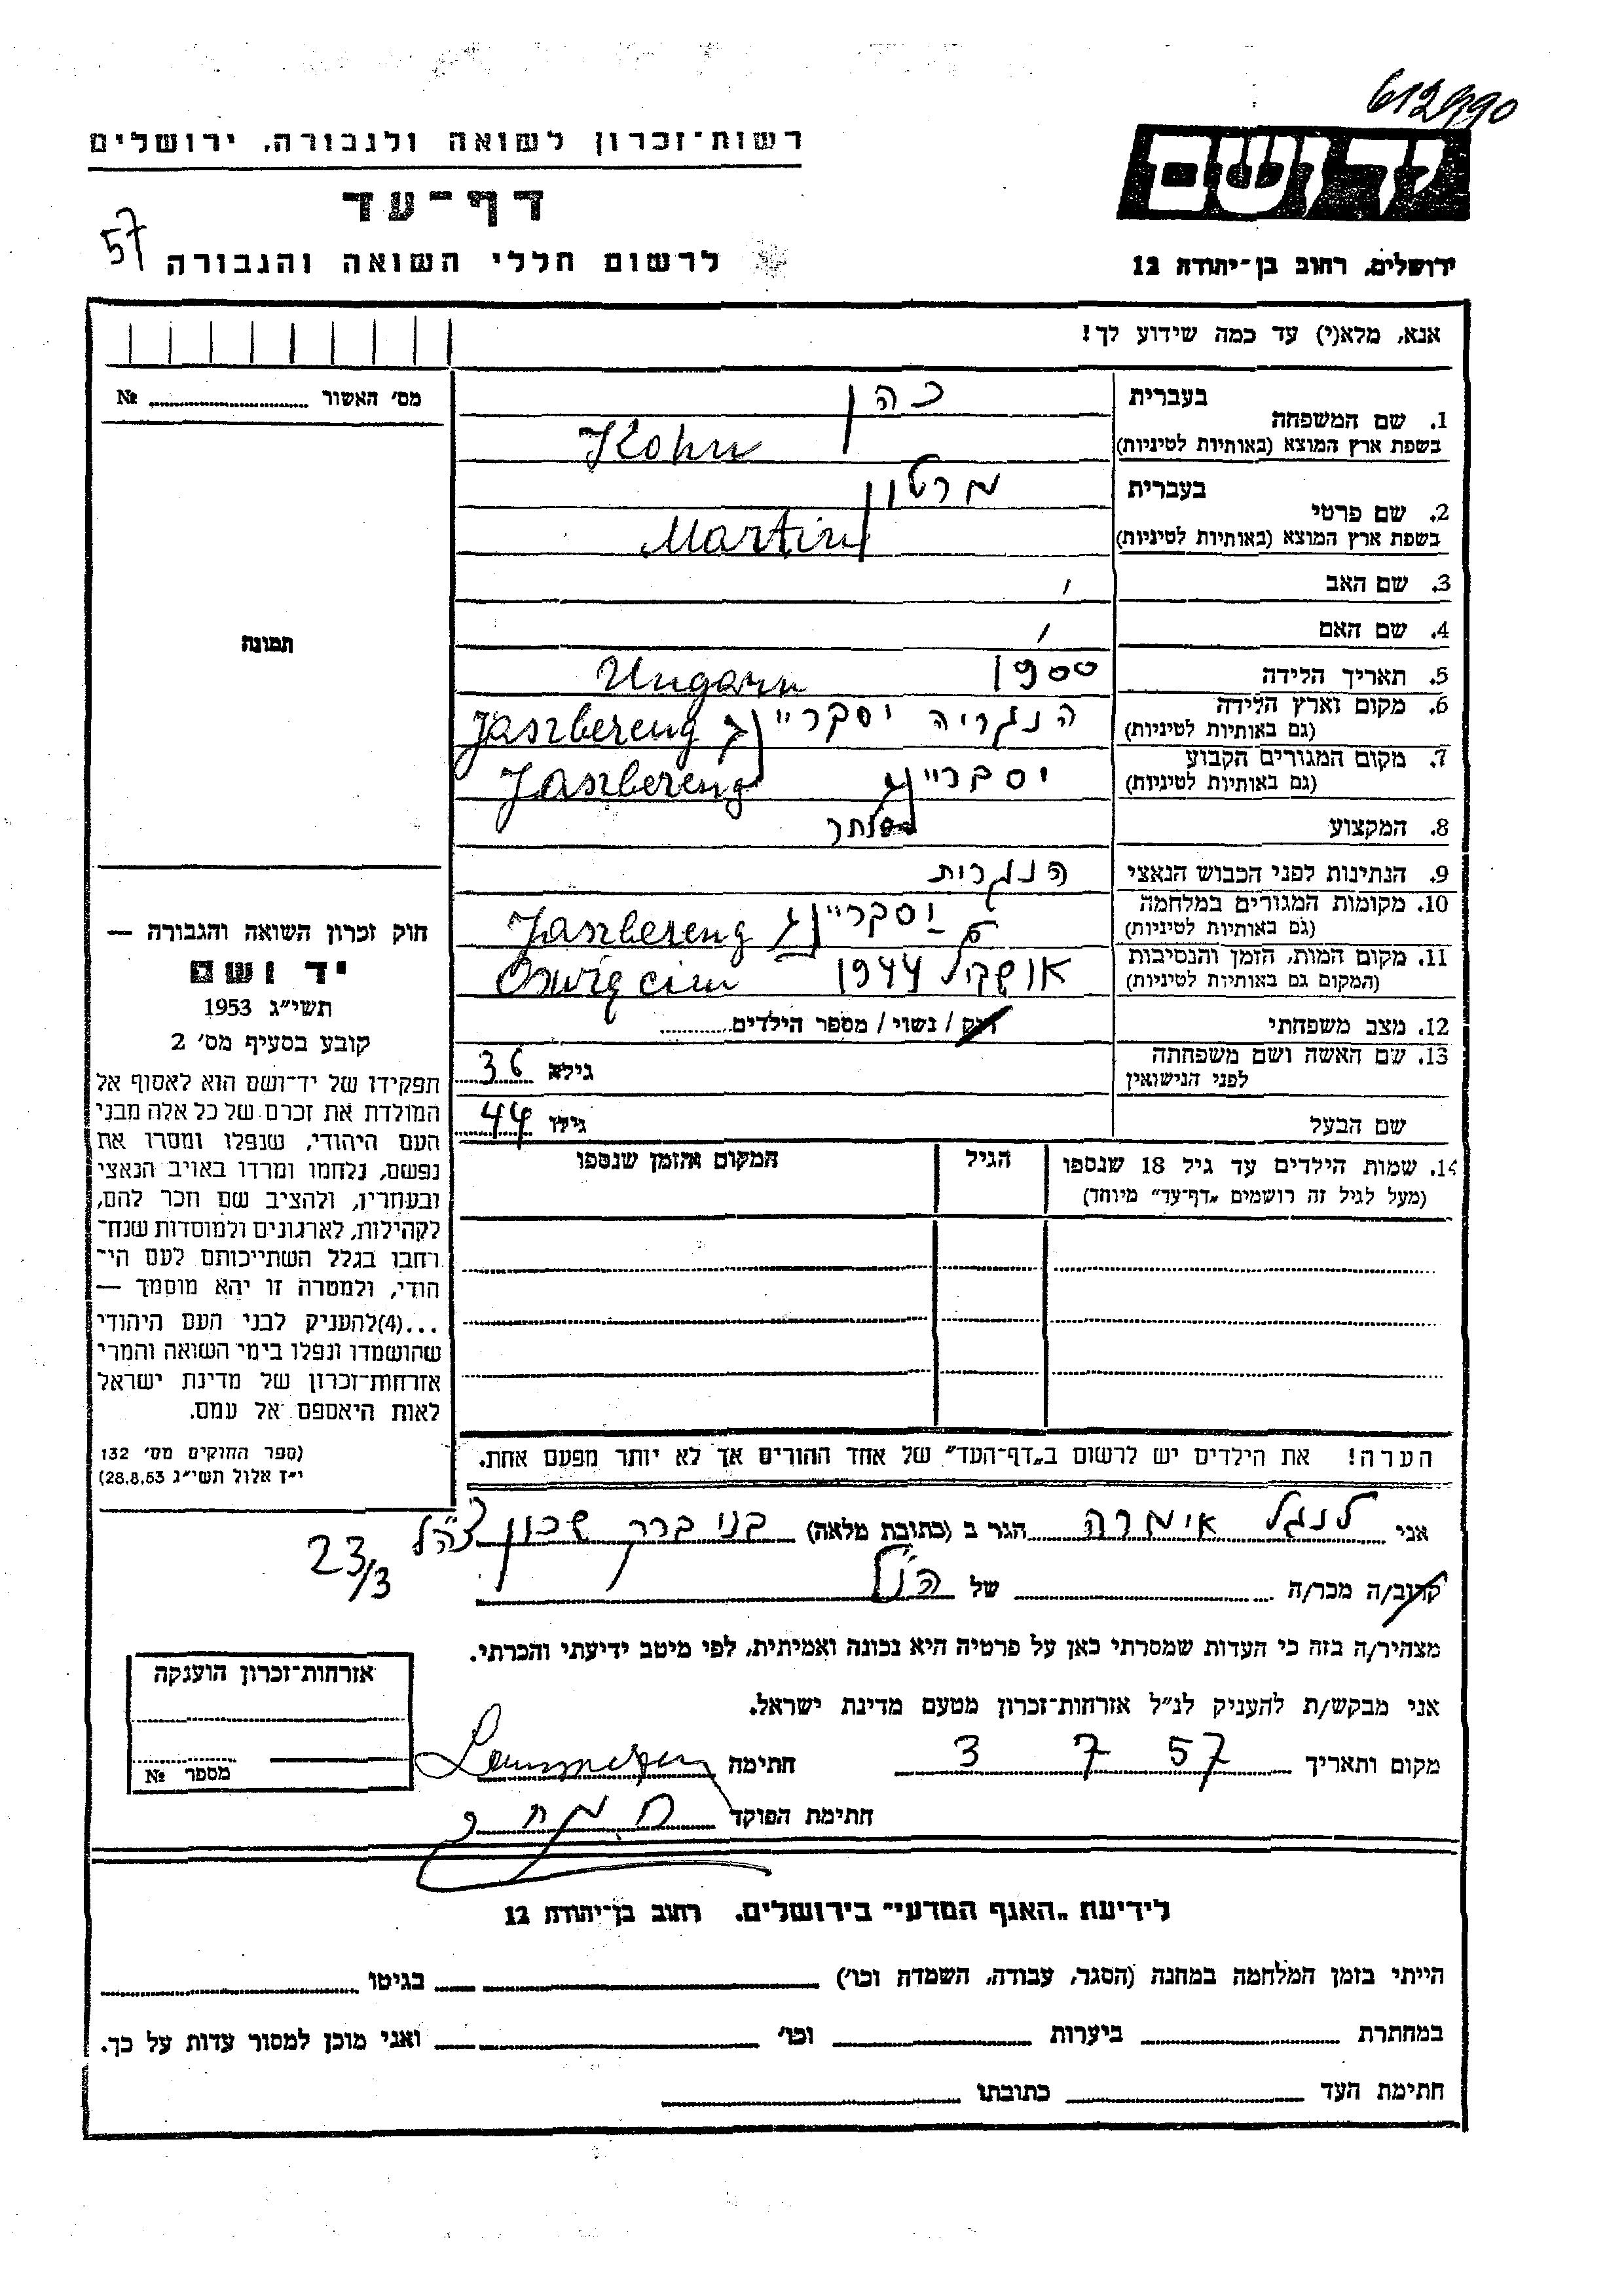 612990
רשות־זכרון לשואה ולגבורה, ירושלים
יד ושם
דף־עד
57
לרשום חללי השואה והגבורה
ירושלים, רחוב בן־יהודה 12
אנא, מלא(י) עד כמה שידוע לך!
מס׳ האשור № 
בעברית
1. שם המשפחה
בשפת ארץ המוצא (באותיות לטיניות)
כהן
Kohn
בעברית
2. שם פרטי
בשפת ארץ המוצא (באותיות לטיניות)
מרטון
Martin
3. שם האב
4. שם האם
5. תאריך הלידה 1900 Ungarn
6. מקום וארץ הלידה
(גם באותיות לטיניות)
הנגריה יסבריינג Jaszbereng
7. מקום המגורים הקבוע
(גם באותיות לטיניות)
יסבריינג Jaszbereng
8. המקצוע סוחר
9. הנתינות לפני הכבוש הנאצי הנגרית
10. מקומות המגורים במלחמה
(גם באותיות לטיניות)
יסבריינג Jaszbereng
11. מקום המות, הזמן והנסיבות
(המקום גם באותיות לטיניות)
1944 Oswięcim
12. מצב משפחתי רוק / נשוי / מספר הילדים
13. שם האשה ושם משפחתה
לפני הנישואין
גילא 36
שם הבעל גילו 44
14. שמות הילדים עד גיל 18 שנספו
(מעל לגיל זה רושמים „דף־עד” מיוחד)
הגיל
המקום והזמן שנספו
הערה! את הילדים יש לרשום ב„דף־העד” של אחד ההורים אך לא יותר מפעם אחת.
תמונה
חוק זכרון השואה והגבורה —
יד ושם
תשי״ג 1953
קובע בסעיף מס׳ 2
תפקידו של יד־ושם הוא לאסוף אל
המולדת את זכרם של כל אלה מבני
העם היהודי, שנפלו ומסרו את
נפשם, נלחמו ומרדו באויב הנאצי
ובעוזריו, ולהציב שם וזכר להם,
לקהילות, לארגונים ולמוסדות שנח־
רבו בגלל השתייכותם לעם הי־
הודי, ולמטרה זו יהא מוסמך —
...(4)להעניק לבני העם היהודי
שהושמדו ונפלו בימי השואה והמרי
אזרחות־זכרון של מדינת ישראל
לאות היאספם אל עמם.
(ספר החוקים מס׳ 132
י״ז אלול תשי״ג 28.8.53)
אני לנגל אימרה הגר ב (כתובת מלאה) בני ברק שכון צה״ל
23/3
קרוב/ה מכר/ה של הנ״ל
מצהיר/ה בזה כי העדות שמסרתי כאן על פרטיה היא נכונה ואמיתית, לפי מיטב ידיעתי והכרתי.
אני מבקש/ת להעניק לנ״ל אזרחות־זכרון מטעם מדינת ישראל.
מקום ותאריך 3 7 57 חתימה
חתימת הפוקד
אזרחות־זכרון הוענקה
מספר №
לידיעת „האגף המדעי” בירושלים, רחוב בן־יהודה 12
הייתי בזמן המלחמה במחנה (הסגר, עבודה, השמדה וכו׳) בגיטו
במחתרת ביערות וכו׳ ואני מוכן למסור עדות על כך.
חתימת העד כתובתו